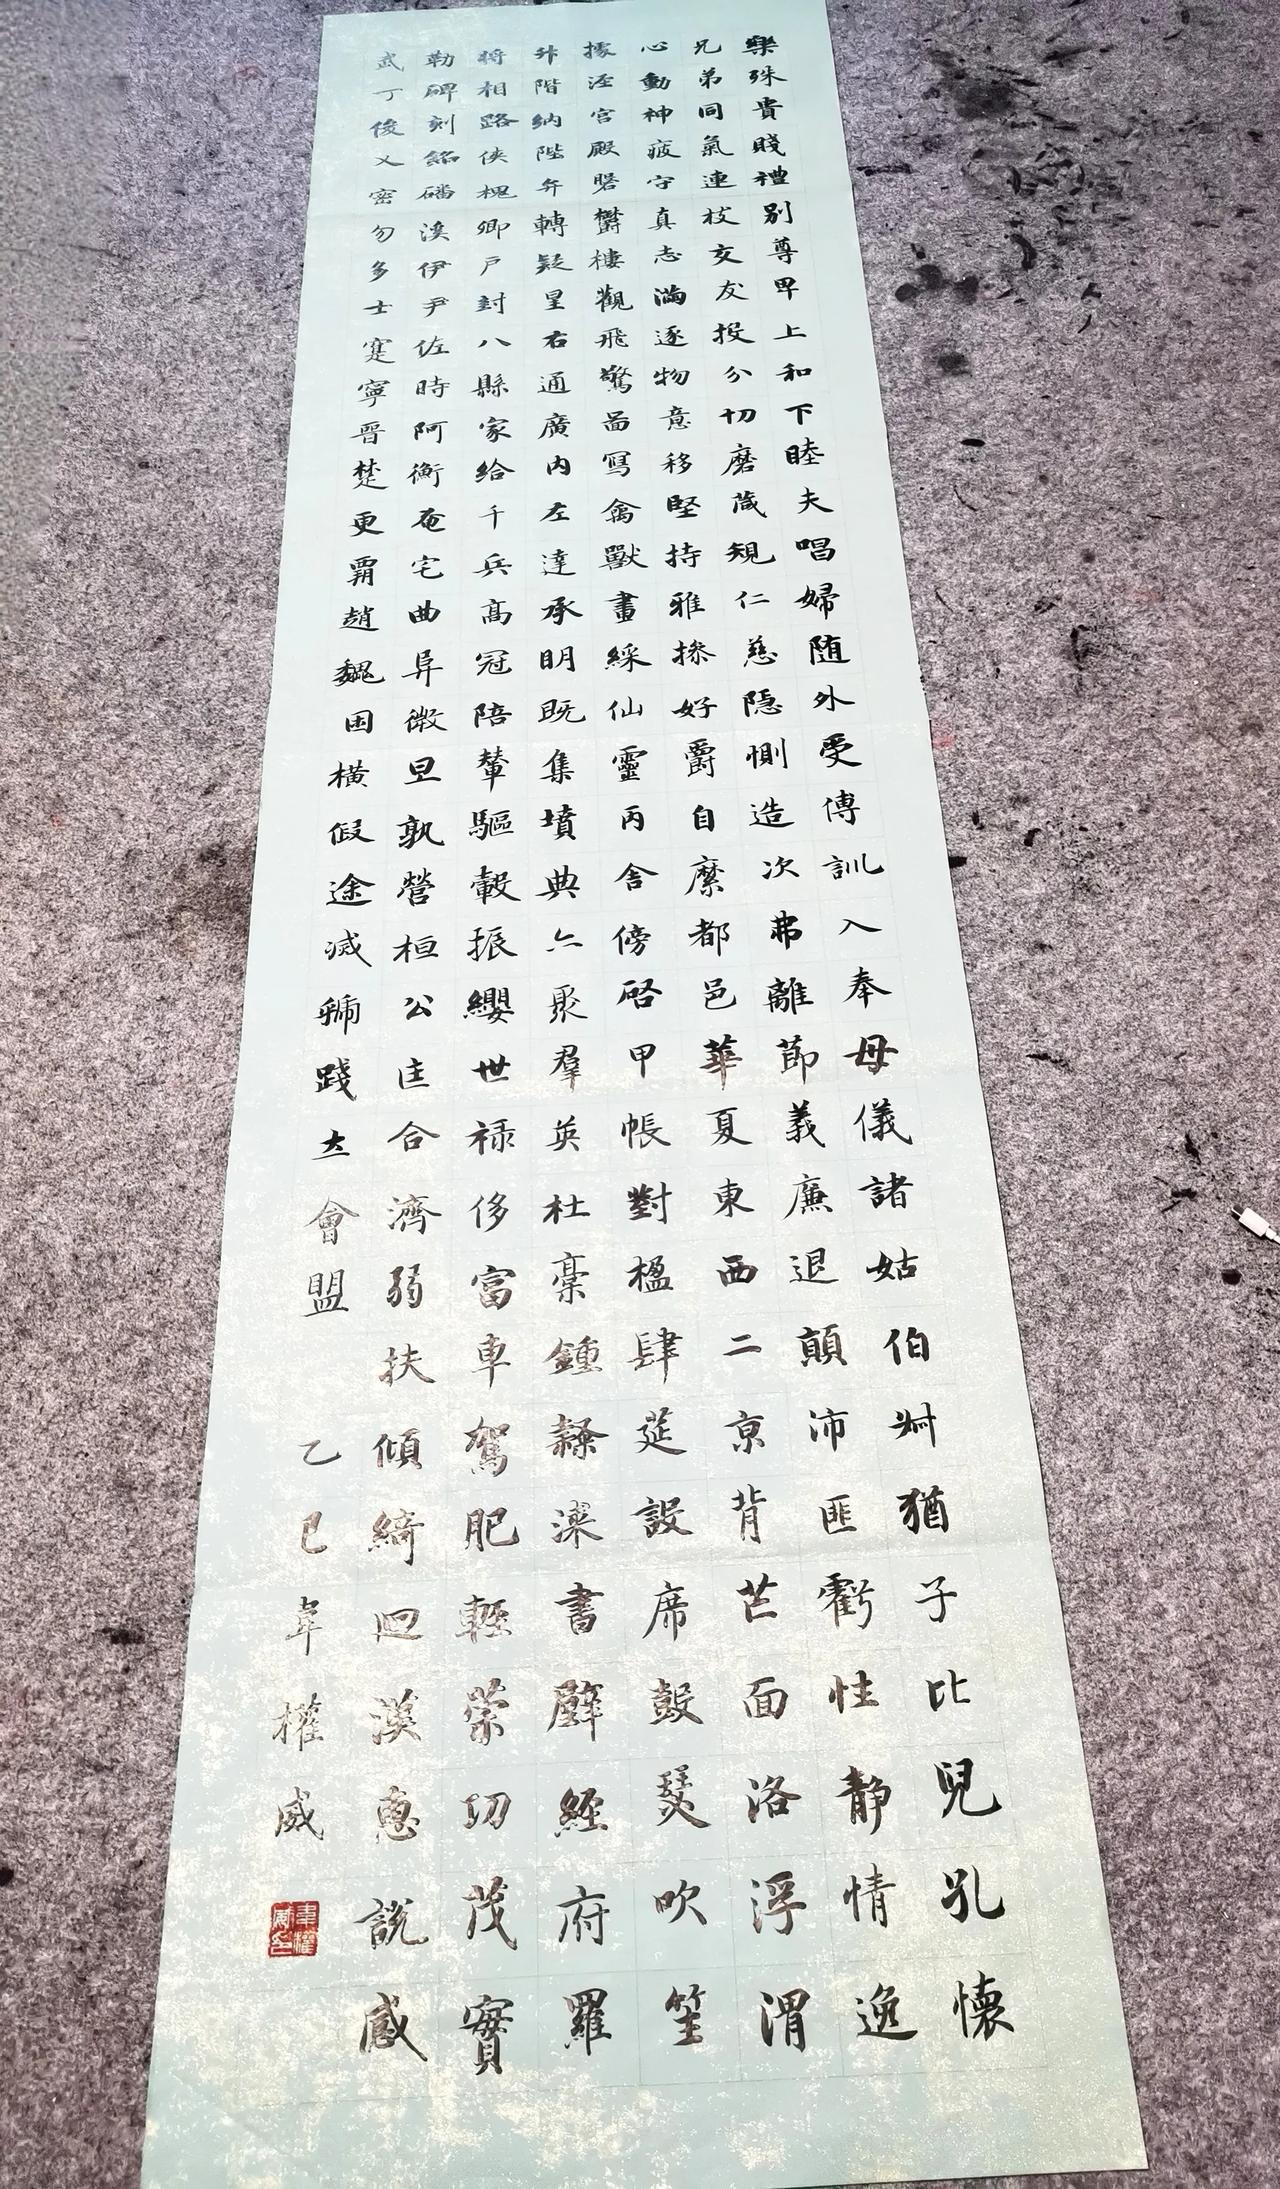 樂殊貴賤禮別尊卑上和下睦夫唱婦随外受傅訓入奉母儀諸姑伯叔猶子比兒孔懷
兄弟同氣連枝交友投分切磨箴規仁慈隱惻造次弗離節義廉退顛沛匪虧性静情逸
心動神疲守真志滿逐物意移堅持雅操好爵自縻都邑華夏東西二京背芒面洛浮渭
據涇宮殿盤鬱樓觀飛驚圖寫禽獸畫綵仙靈丙舍傍啓甲帳對楹肆筵設席鼓瑟吹笙
升階納陛弁轉疑星右通廣内左達承明既集墳典亦聚羣英杜稾鍾隸漆書壁經府羅
將相路俠槐卿戶封八縣家給千兵高冠陪輦驅轂振纓世禄侈富車駕肥輕策功茂實
勒碑刻銘磻溪伊尹佐時阿衡奄宅曲阜微旦孰營桓公匡合濟弱扶傾綺迴漢惠說感
武丁俊乂密勿多士寔寧晉楚更霸趙魏困橫假途滅虢踐土會盟 乙巳韋權威
韋權威印